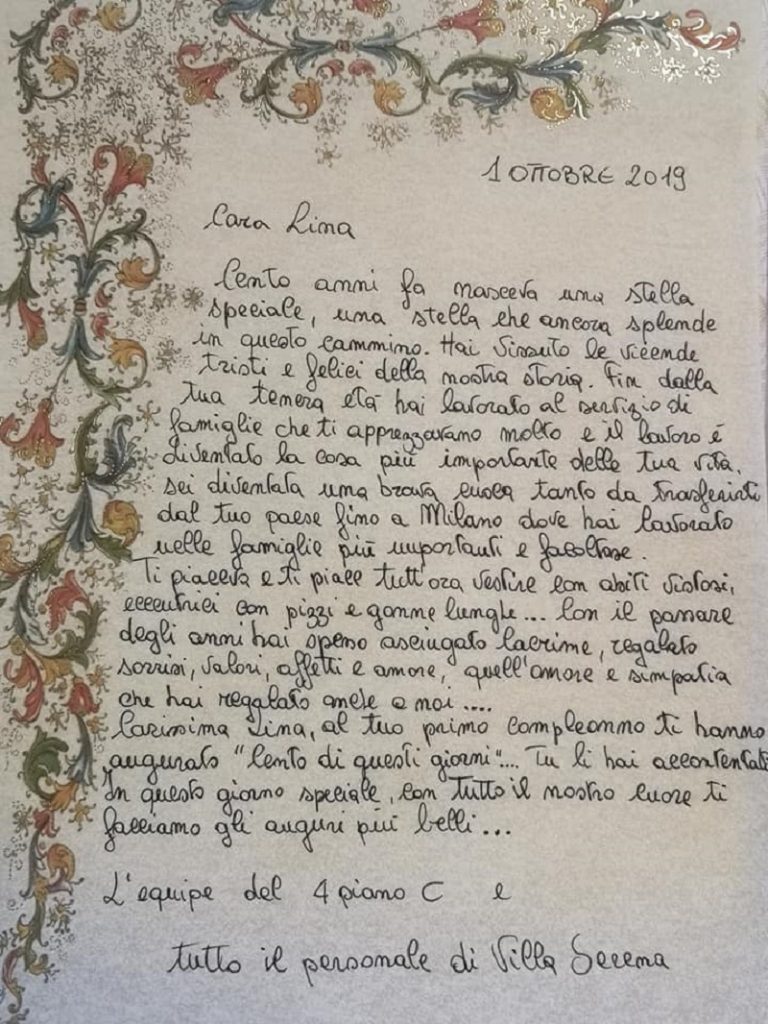 1 OTTOBRE 2019
Cara Lina
Cento anni fa nasceva una stella
speciale, una stella che ancora splende
in questo cammino. Hai vissuto le vicende
tristi e felici della nostra storia. Fin dalla
tua tenera età hai lavorato al servizio di
famiglie che ti apprezzavano molto e il lavoro é
diventato la cosa più importante della tua vita.
sei diventata una brava cuoca tanto da trasferirti
dal tuo paese fino a Milano dove hai lavorato
nelle famiglie più importanti e facoltose.
Ti piaceva e ti piace tutt'ora vestire con abiti vistosi,
eccentrici con pizzi e gonne lunghe... Con il passare
degli anni hai spesso asciugato lacrime, regalato
sorrisi, valori, affetti e amore, quell'amore e simpatia
che hai regalato anche a noi....
Carissima Lina, al tuo primo compleanno ti hanno
augurato "Cento di questi giorni"... Tu li hai accontentati
In questo giorno speciale, con tutto il nostro cuore ti
facciamo gli auguri più belli...
L'equipe del 4 piano C e
tutto il personale di Villa Serena